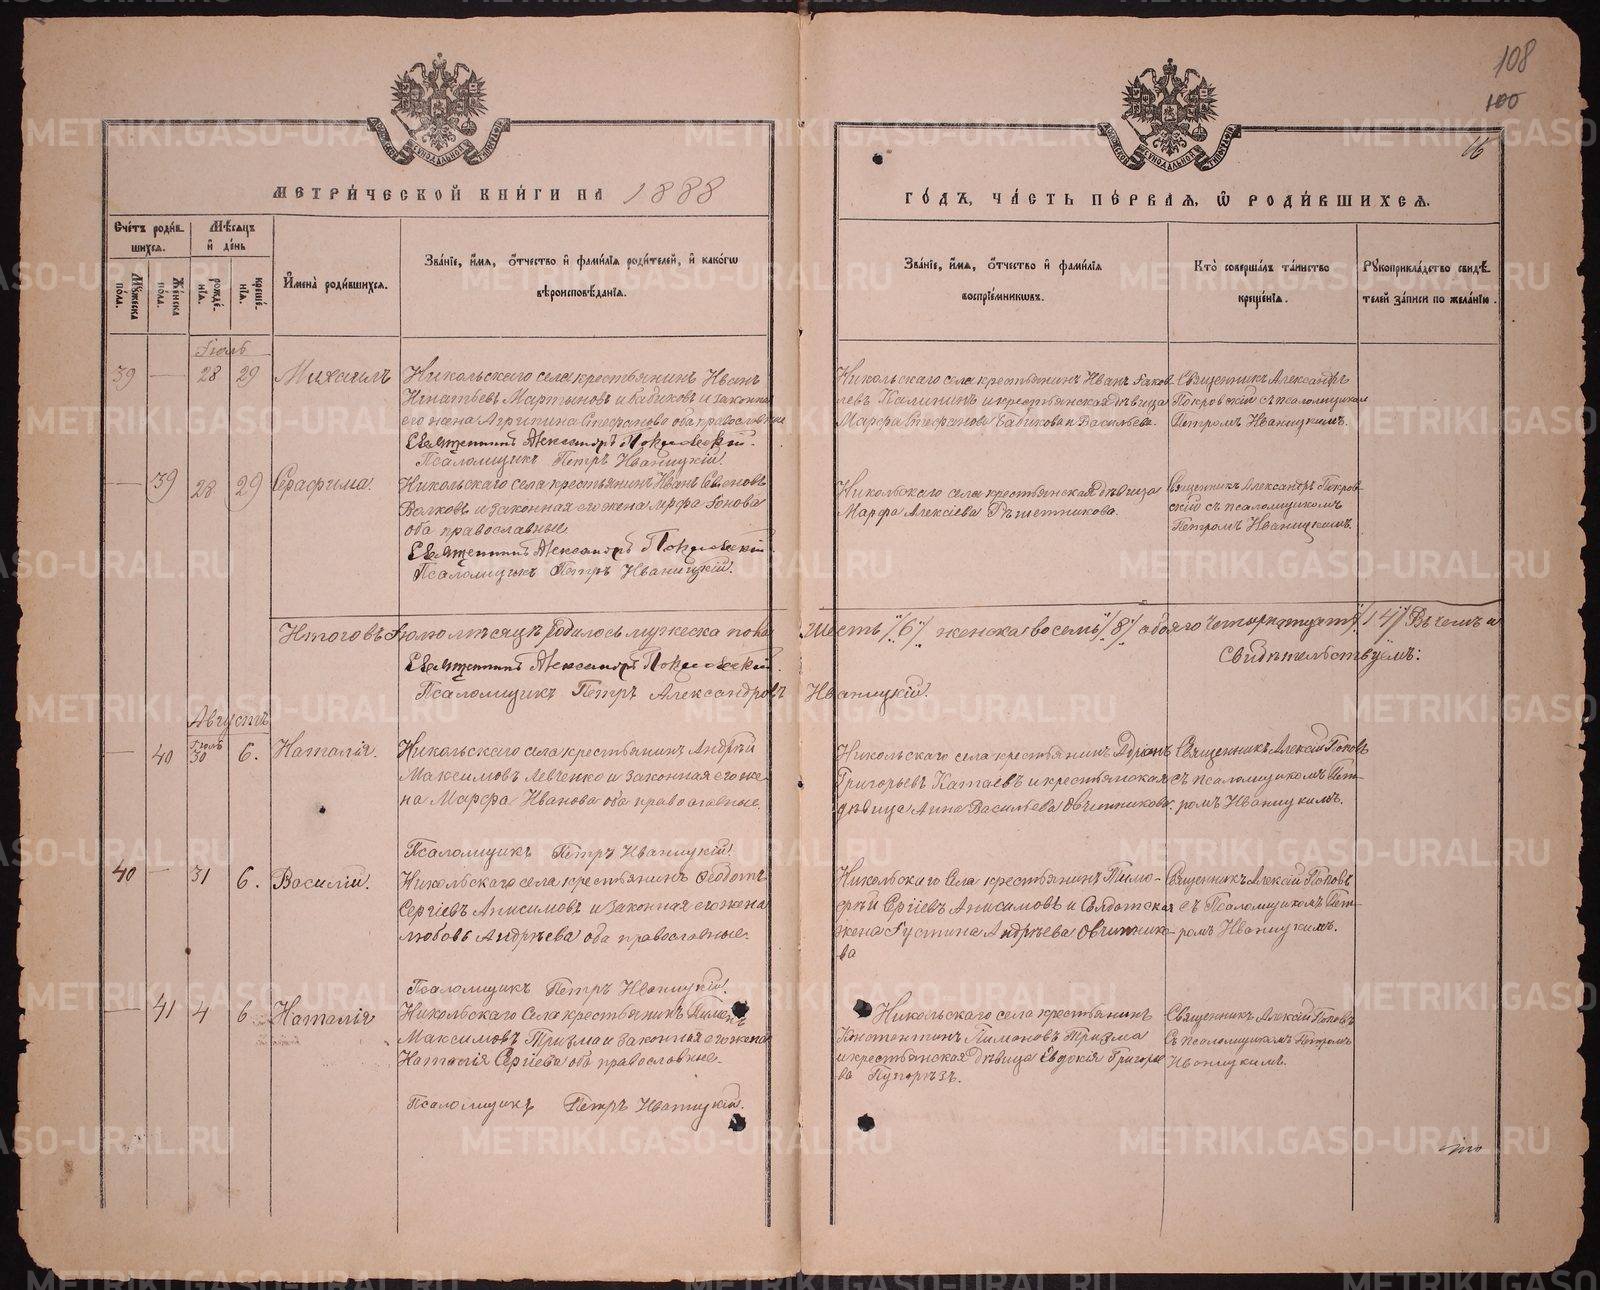 108
100
16
МЕТРИЧЕСКОЙ КНИГИ НА 1888
ГОДЪ, ЧАСТЬ ПЕРВАЯ, Ѡ РОДИВШИХСЯ.
Счетъ родившихся.
Мѣсяцъ и день
Мужеска пола.
Женска пола.
рожденія.
крещенія.
Имена родившихся.
Званіе, имя, отчество и фамилія родителей, и какогѡ
вѣроисповѣданія.
Званіе, имя, отчество и фамилія
воспріемниковъ.
Кто совершалъ таинство
крещенія.
Рукоприкладство свидѣтелей записи по желанію.
Іюль
39 — 28 29 Михаилъ
Никольскаго села крестьянинъ Иванъ
Игнатьевъ Мартыновъ и Бабиковъ и законная
его жена Агрипина Стефанова оба православные
Священникъ Александръ Покровскій.
Псаломщикъ Петръ Иваницкій.
Никольскаго села крестьянинъ Иванъ Яковлевъ Калининъ и крестьянская дѣвица
Марфа Стефанова Бабикова и Васильева.
Священникъ Александръ
Покровскій съ псаломщикомъ
Петромъ Иваницкимъ.
— 39 28 29 Серафима.
Никольскаго села крестьянинъ Иванъ
Волковъ и законная его жена
оба православные
Священникъ Александръ Покровскій
Псаломщикъ Петръ Иваницкій.
Никольскаго села крестьянская дѣвица
Марфа Алексіева Рѣшетникова.
Священникъ Александръ Покровскій съ псаломщикомъ
Петромъ Иваницкимъ.
Итого въ Іюлѣ мѣсяцѣ родилось мужеска пола шесть /6/ женска восемь /8/ обоего четырнадцать /14/ Въ чемъ и
свидѣтельствуемъ:
Священникъ Александръ Покровскій.
Псаломщикъ Петръ Александровъ Иваницкій.
Августъ
Іюль
— 40 30 6. Наталія.
Никольскаго села крестьянинъ Андрей
Максимовъ Левченко и законная его жена Марфа Иванова оба православные.
Псаломщикъ Петръ Иваницкій.
Никольскаго села крестьянинъ
Григорьевъ Катаевъ и крестьянская
дѣвица Анна Васильева Овчинникова.
Священникъ Алексій Поповъ
съ псаломщикомъ Петромъ Иваницкимъ.
40 — 31 6. Василій.
Никольскаго села крестьянинъ Ѳеодотъ
Сергіевъ Анисимовъ и законная его жена
Любовь Андреева оба православные.
Псаломщикъ Петръ Иваницкій.
Никольскаго Села крестьянинъ Тимоѳей Сергіевъ Анисимовъ и Солдатская
жена Густина Андреева Овчинникова
Священникъ Алексій Поповъ
съ Псаломщикомъ Петромъ Иваницкимъ.
— 41 4 6 Наталія
Никольскаго Села крестьянинъ Пименъ
Максимовъ Тризма и законная его жена
Наталія Сергіева оба православные.
Псаломщикъ Петръ Иваницкій.
Никольскаго села крестьянинъ
Константинъ Пимоновъ Тризма
и крестьянская дѣвица Евдокія Григорьева
Священникъ Алексій Поповъ
съ псаломщикомъ Петромъ
Иваницкимъ.
METRIKI.GASO-URAL.RU